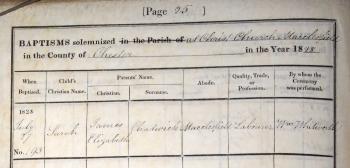 [Page 25.]
BAPTISMS solemnized in the Parish of at Christ Church Macclesfield
in the County of Chester in the Year 1828
When Baptized. Child's Christian Name. Parents' Name. Abode. Quality, Trade, or Profession. By whom the Ceremony was performed.
Christian. Surname.
1828
July
No. 193
Sarah
James
Elizabeth
Chadwick
Macclesfield
Labourer